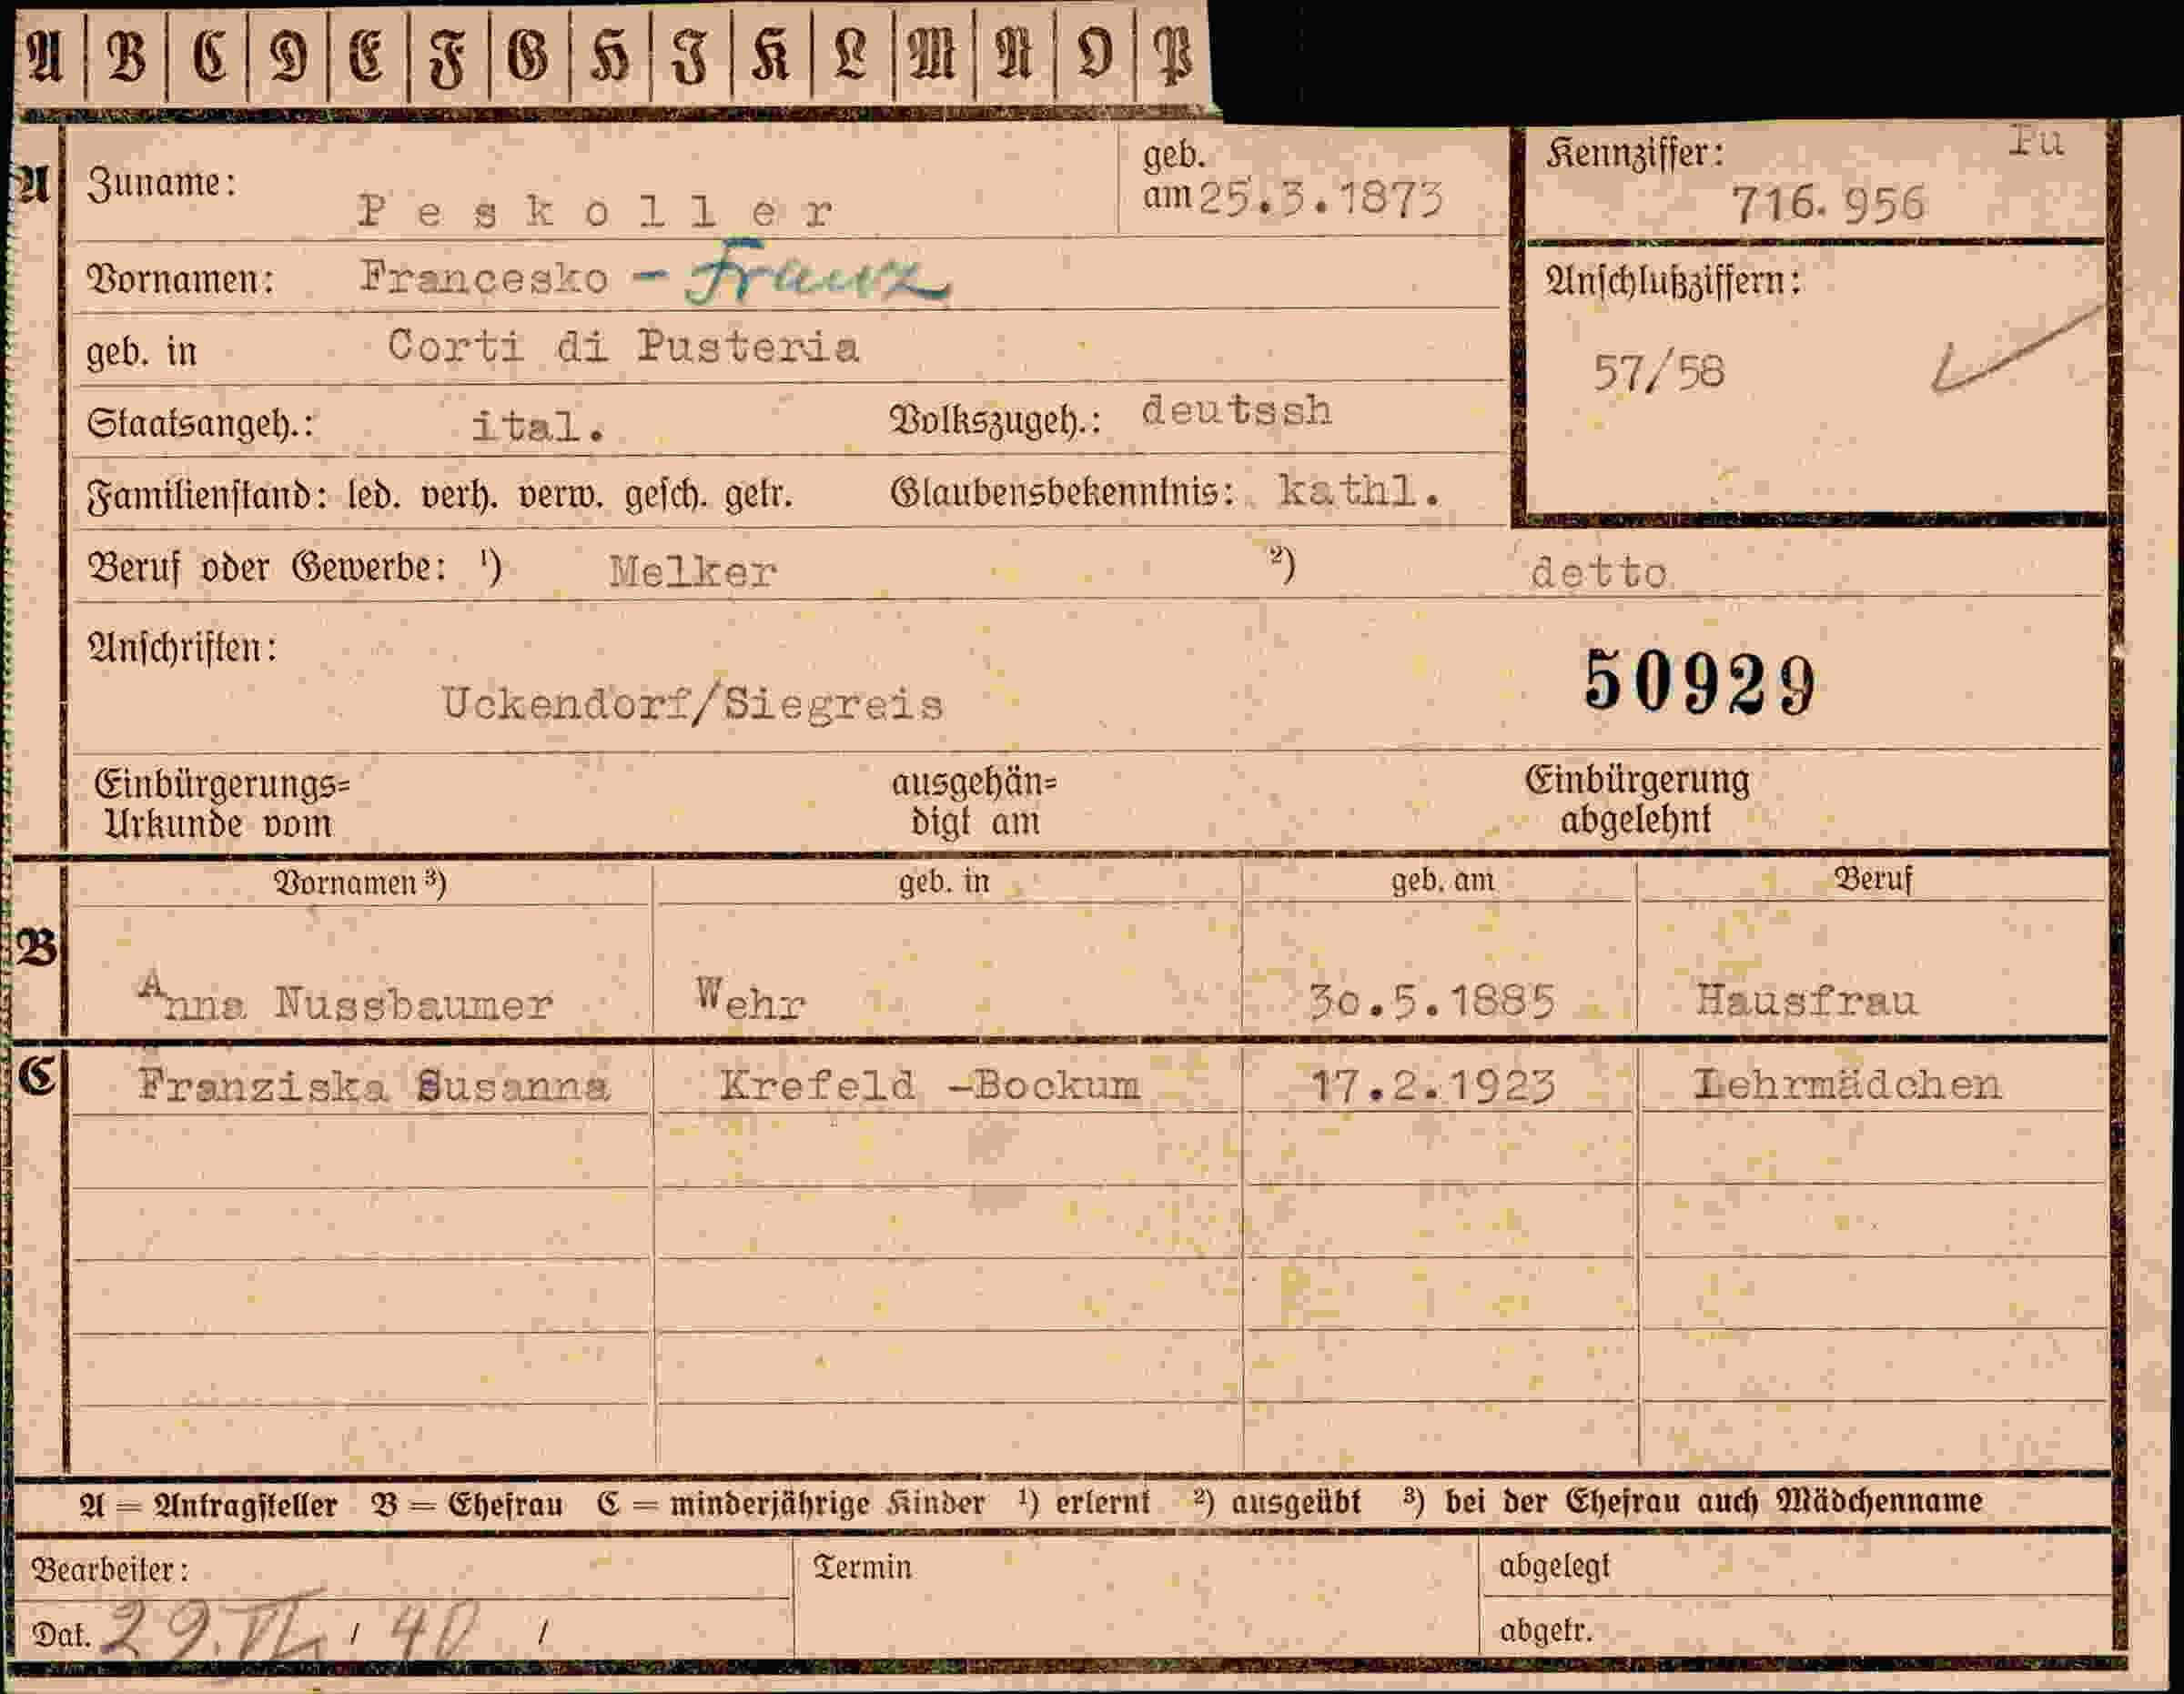 A B C D E F G H I K L M N O P
A Zuname: Peskoller geb. am 25.3.1873
Kennziffer: Pu
716.956
Vornamen: Francesko - Franz
Anschlußziffern:
geb. in Corti di Pusteria
57/58
Staatsangeh.: ital. Volkszugeh.: deutssh
Familienstand: led. verh. verw. gesch. getr. Glaubensbekenntnis: kathl.
Beruf oder Gewerbe: ¹) Melker ²) detto
Anschriften:
Uckendorf/Siegreis 50929
Einbürgerungs= ausgehän= Einbürgerung
Urkunde vom digt am abgelehnt
Vornamen ³) geb. in geb. am Beruf
B Anna Nussbaumer Wehr 30.5.1885 Hausfrau
C Franziska Susanna Krefeld -Bockum 17.2.1923 Lehrmädchen
A = Antragsteller B = Ehefrau C = minderjährige Kinder ¹) erlernt ²) ausgeübt ³) bei der Ehefrau auch Mädchenname
Bearbeiter: Termin abgelegt
Dat. 29. / 40 / abgetr.